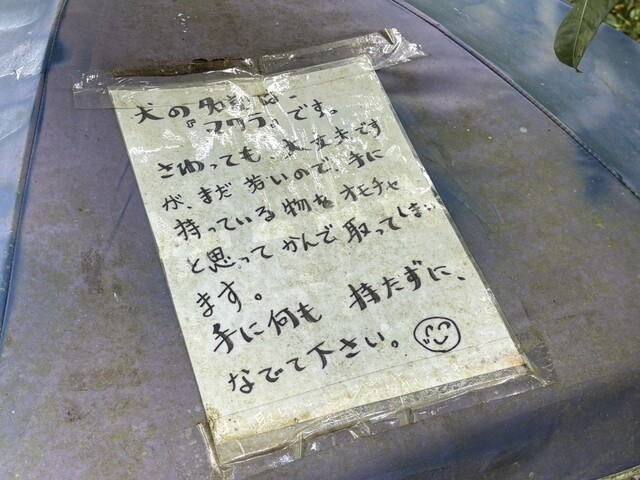 犬の名前は
『マクラ』です。
さわっても、大丈夫です
が、まだ若いので、手に
持っている物をオモチャ
と思ってかんで取ってしまい
ます。
手に何も持たずに、
なでて下さい。